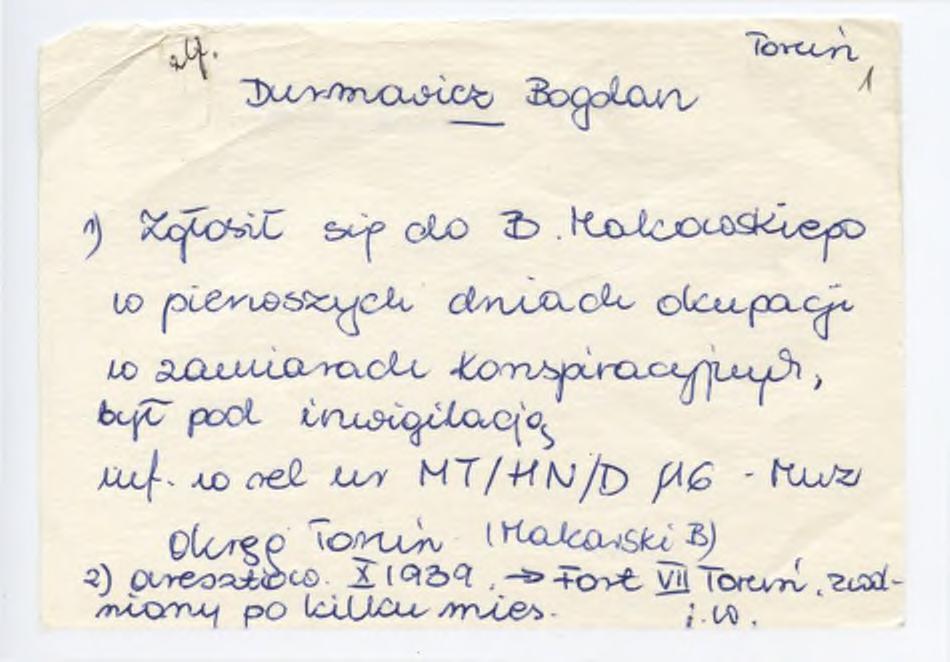 alf. Toruń
1
Durmowicz Bogdan
1) Zgłosił się do B. Makowskiego
w pierwszych dniach okupacji
w zamiarach konspiracyjnych,
był pod inwigilacją
inf. w rel nr MT/HN/D /16 - Muz
Okręg Toruń (Makowski B)
2) aresztow. X 1939. → Fort VII Toruń, zwol-
niony po kilku mies. j.w.